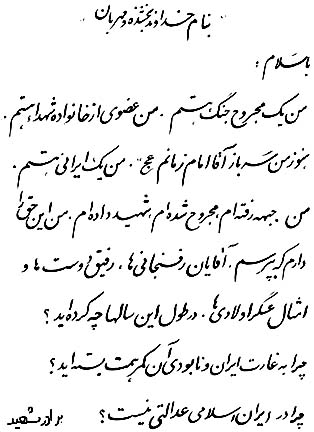 بنام خداوند بخشنده و مهربان
با سلام :
من یک مجروح جنگ هستم . من عضوی از خانواده شهدا هستم .
هنوز من سرباز آقا امام زمانم عج . من یک ایرانی هستم .
من جبهه رفته ام مجروح شده ام شهید داده ام . من این حق را
دارم که بپرسم . آقایان رفسنجانی ها ، رفیق دوست ها و
امثال عسگراولادی ها ، در طول این سالها چه کرده اید ؟
چرا به غارت ایران و نابودی آن کمر همت بسته اید ؟
چرا در ایران اسلامی عدالتی نیست ؟ برادر شهید